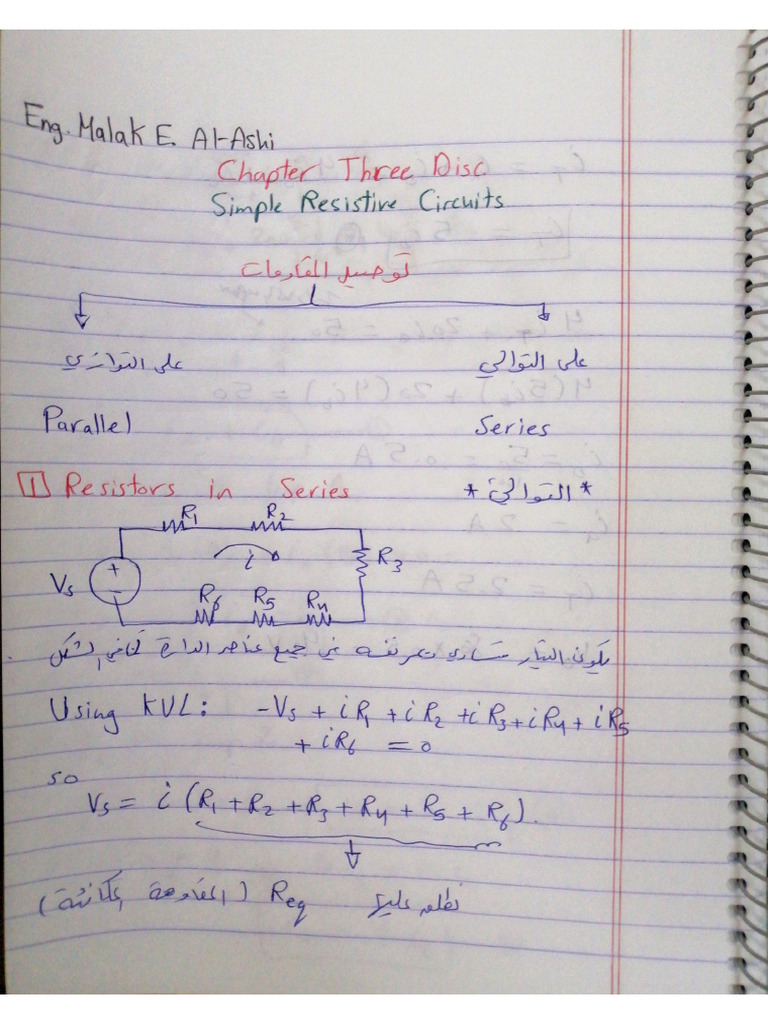 Eng. Malak E. Al-Ashi
Chapter Three Disc
Simple Resistive Circuits
توصيل المقاومات
على التوازي على التوالي
Parallel Series
1 Resistors in Series * التوالي *
R1 R2
Vs + - i R3
R6 R5 R4
يكون التيار متساوي في جميع عناصر الدارة كما في الشكل
Using KVL: -Vs + iR1 + iR2 + iR3 + iR4 + iR5
+ iR6 = 0
so
Vs = i (R1 + R2 + R3 + R4 + R5 + R6).
نطلق عليها Req (المقاومة المكافئة)